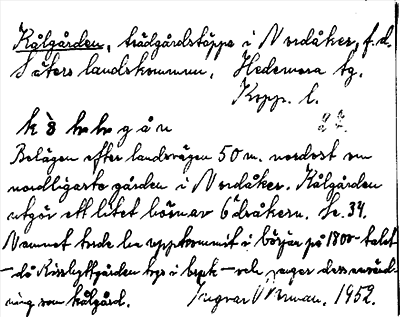 Kålgården, trädgårdstäppa i Nordåker, f.d.
Säters landskommun, Hedemora tg.
Kopp. l.
Belägen efter landsvägen 50 m. nordost om
nordligaste gården i Nordåker. Kålgården
utgör ett litet hörn av 6 dråkern. Se. 34.
Namnet torde ha uppkommit i början på 1800-talet
- då Risshyttgården togs i bruk - och anger dess använd-
ning som kålgård. Ingvar 1952.